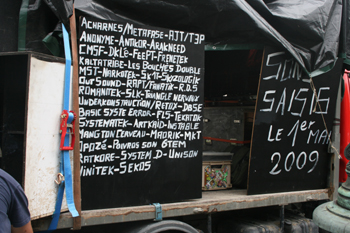 ACHARNES/METAFASE-AJT/TJP
ANONYME-ANTIKOR-ARAKNEED
CMSF-DKLÉ-FEEPT-FRENETEK
KALTATRIBE-LES BOUCHES DOUBLE
MST-NARKOTEK-SK1-SKIZOLOGIK
OUR SOUND-RAPT/FAWATE-R.D.S
ROMANITEK-SLK-TRIANGLE NERVAUX
UNDERKONSTRUCTION/RETOX-DBASE
BASIC SYSTE ERROR-PLS-TEKATOK
SYSTEMATEK-ARTKAID-INSTABLE
MANGTON CERVEAU-MAORIK-MKT
OPOZÉ-POUAOS SON 6TEM
RATKORE-SYSTEM D-UNISON
INITEK-SEKOS
SONS
SAISIS
LE 1er MAI
2009